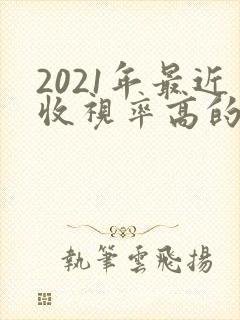 2021年最近
收視率高的
執筆雲飛揚